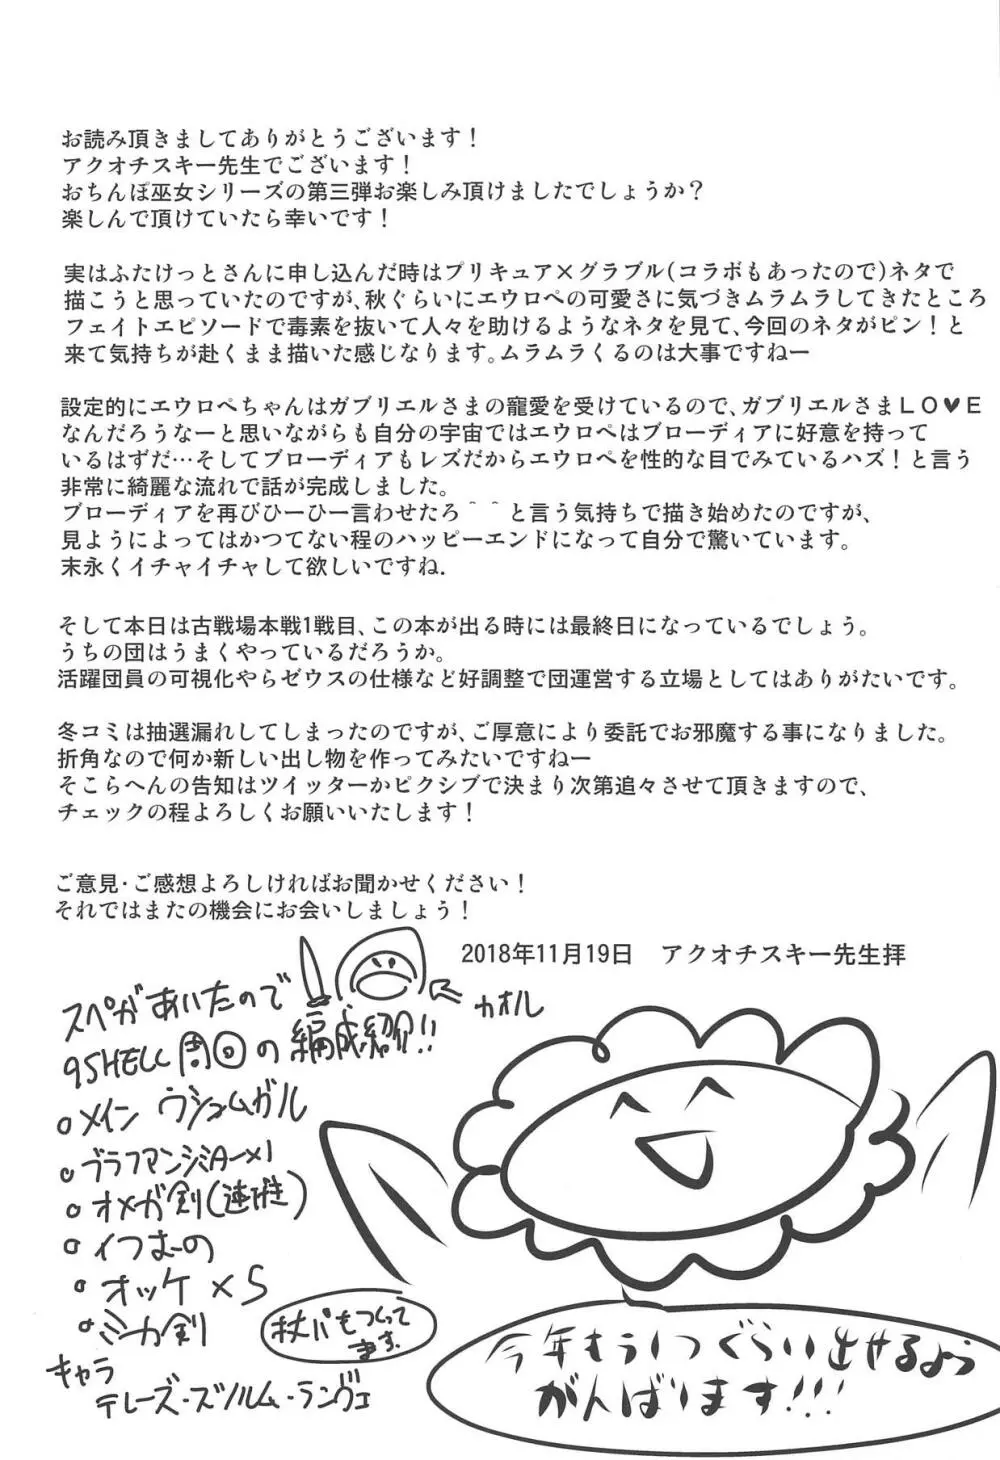 お読み頂きましてありがとうございます!
アクオチスキー先生でございます!
おちんぽ巫女シリーズの第三弾お楽しみ頂けましたでしょうか?
楽しんで頂けていたら幸いです!
実はふたけっとさんに申し込んだ時はプリキュア×グラブル(コラボもあったので)ネタで
描こうと思っていたのですが、秋ぐらいにエウロペの可愛さに気づきムラムラしてきたところ
フェイトエピソードで毒素を抜いて人々を助けるようなネタを見て、今回のネタがピン!と
来て気持ちが赴くまま描いた感じなります。ムラムラくるのは大事ですねー
設定的にエウロペちゃんはガブリエルさまの寵愛を受けているので、ガブリエルさまＬＯ♥Ｅ
なんだろうなーと思いながらも自分の宇宙ではエウロペはブローディアに好意を持って
いるはずだ…そしてブローディアもレズだからエウロペを性的な目でみているハズ!と言う
非常に綺麗な流れで話が完成しました。
ブローディアを再びひーひー言わせたろ＾＾と言う気持ちで描き始めたのですが、
見ようによってはかつてない程のハッピーエンドになって自分で驚いています。
末永くイチャイチャして欲しいですね.
そして本日は古戦場本戦1戦目、この本が出る時には最終日になっているでしょう。
うちの団はうまくやっているだろうか。
活躍団員の可視化やらゼウスの仕様など好調整で団運営する立場としてはありがたいです。
冬コミは抽選漏れしてしまったのですが、ご厚意により委託でお邪魔する事になりました。
折角なので何か新しい出し物を作ってみたいですねー
そこらへんの告知はツイッターかピクシブで決まり次第追々させて頂きますので、
チェックの程よろしくお願いいたします!
ご意見・ご感想よろしければお聞かせください!
それではまたの機会にお会いしましょう!
2018年11月19日 アクオチスキー先生拝
カオル
スペがあいたので
9SHELL周回の編成紹介!!
○メイン ウシュムガル
○ブラフマンシミター×1
○オメガ剣(連撃)
○イつおーの
○オッケ×5
○ミカ剣
杖パもつくって
ます.
キャラ
テレーズ・ズルム・ランヴェ
今年もう1つぐらい出せるよう
がんばります!!!